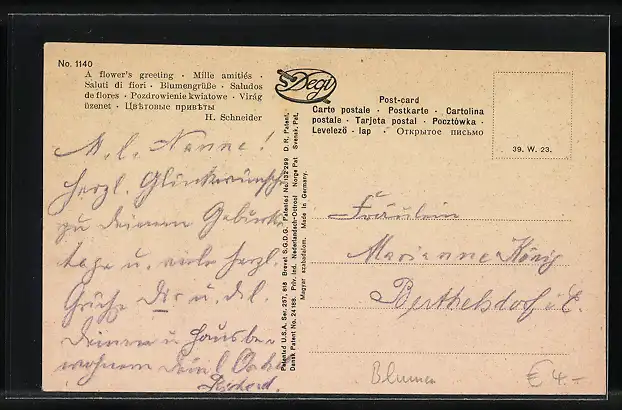 No. 1140
A flower's greeting · Mille amitiés ·
Saluti di fiori · Blumengrüße · Saludos
de flores · Pozdrowienie kwiatowe · Virág
üzenet · Цвѣтовые привѣты
H. Schneider
Degi
Post-card
Carte postale · Postkarte · Cartolina
postale · Tarjeta postal · Pocztówka ·
Levelező - lap · Открытое письмо
39. W. 23.
Patented U.S.A. Ser. 237, 818 Brevet S.G.D.G. Patented No. 132299 D. R. Patent.
Dansk Patent No. 24 188. Priv. ind. Nederlandsch-Octrooi Norge Pat Svensk. Pat.
Magyar szabadalom. Made in Germany.
M. l. Nanne!
Herzl. Glückwünsche
zu deinem Geburts-
tage u. viele herzl.
Grüße Dir u. d. l.
Deinen u Hausbe-
wohnern Dein l.
Fräulein
Marianne König
Berthelsdorf i. E.
Blumen
€ 4.-